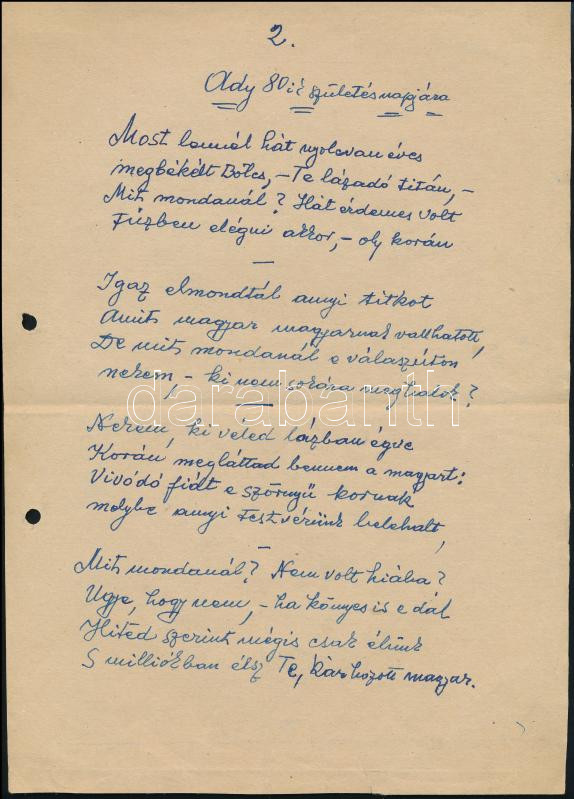 2.
Ady 80ik születésnapjára
Most lennél hát nyolcvan éves
megbékélt Bölcs, – Te lázadó titán, –
Mit mondanál? Hát érdemes volt
Tűzben elégni akkor, – oly korán
—
Igaz elmondtál annyi titkot
Amit magyar magyarnak vallhatott,
De mit mondanál e válaszúton
nekem, – ki nem sokára meghalok?
darabanth
—
Nekem, ki véled lázban égve
Korán megláttad bennem a magyart:
Vivódó fiát e szörnyű kornak
melybe annyi Testvérünk belehalt,
—
Mit mondanál? Nem volt hiába?
Ugye, hogy nem, – ha könnyes is e dal
Hited szerint mégis csak élünk
S milliókban élsz Te, kárhozott magyar.